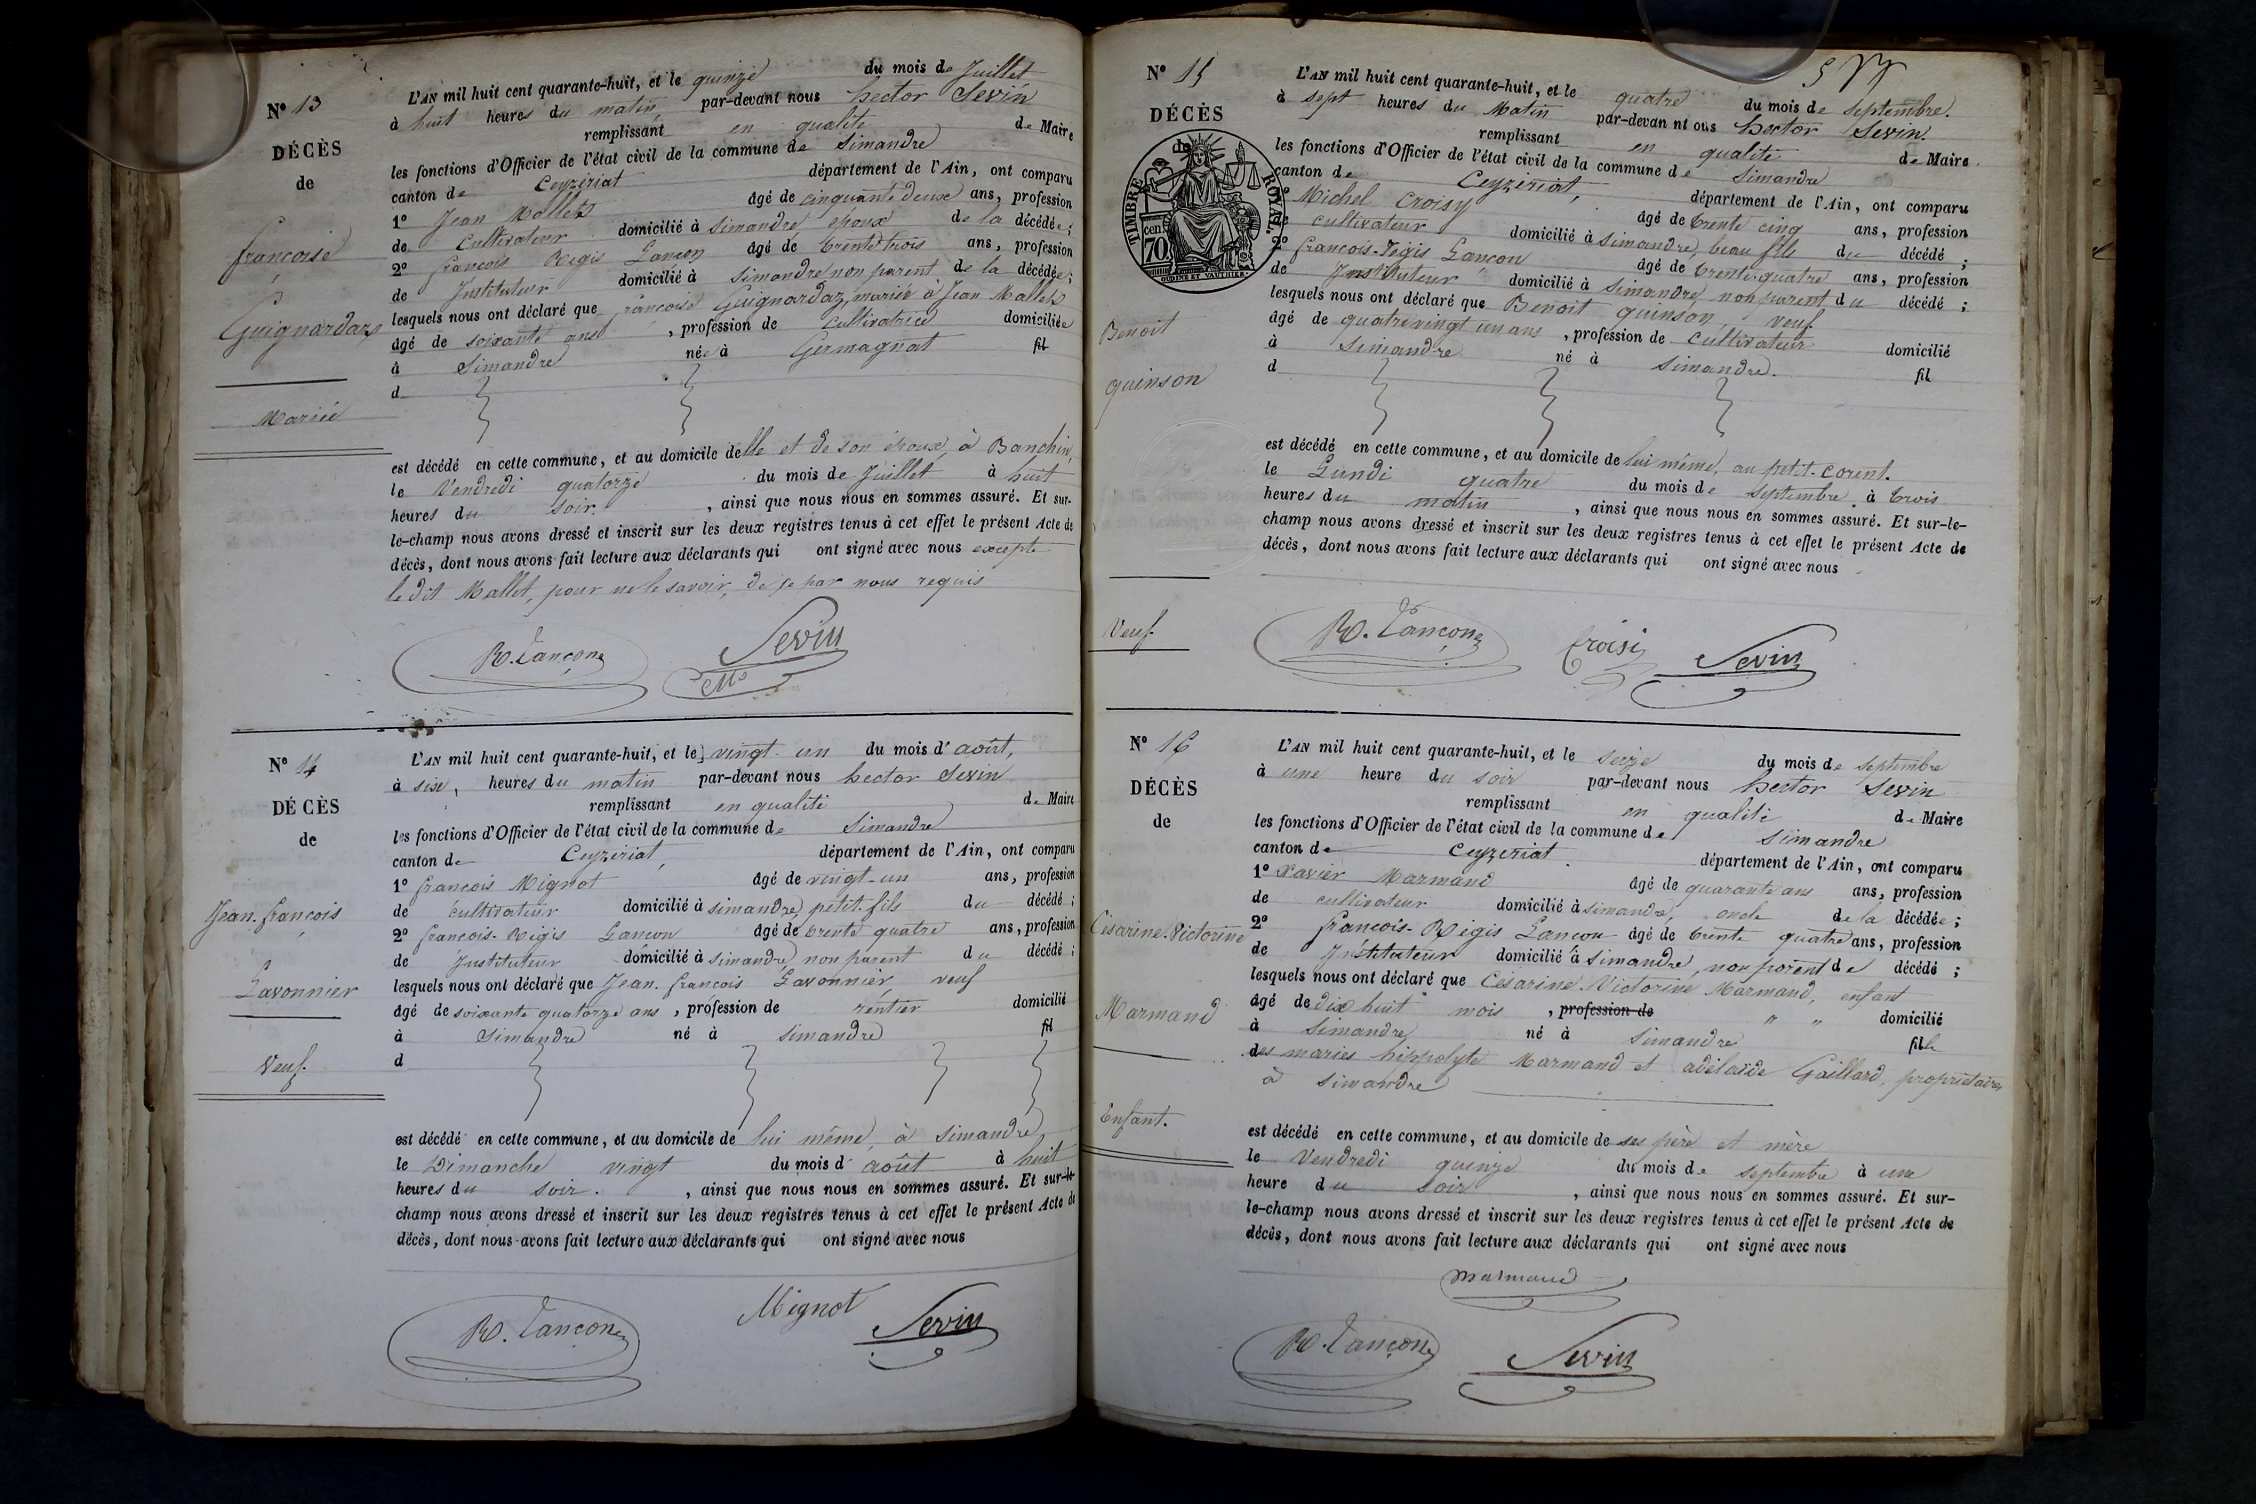 N° 13
DÉCÈS
de
françoise
Guignardaz
Mariée
L'AN mil huit cent quarante-huit, et le quinze du mois de Juillet
à huit heures du matin, par-devant nous hector Sevin
remplissant en qualité de Maire
les fonctions d'Officier de l'état civil de la commune de Simandre
canton de Ceyzériat département de l'Ain, ont comparu
1° Jean Mallet âgé de cinquante deux ans, profession
de Cultivateur domicilié à Simandre, époux de la décédée;
2° françois Régis Lançon âgé de trente trois ans, profession
de Instituteur domicilié à Simandre non parent de la décédée;
lesquels nous ont déclaré que françoise Guignardaz, mariée à Jean Mallet
âgé de soixante ans, profession de Cultivatrice domiciliée
à Simandre née à Germagnat fil
d
est décédé en cette commune, et au domicile delle et de son époux, à Banchin,
le Vendredi quatorze du mois de Juillet à huit
heures du soir, ainsi que nous nous en sommes assuré. Et sur-
le-champ nous avons dressé et inscrit sur les deux registres tenus à cet effet le présent Acte de
décès, dont nous avons fait lecture aux déclarants qui ont signé avec nous excepté
le dit Mallet, pour ne le savoir, de ce par nous requis
R. Lançon Sevin
N° 14
DÉCÈS
de
Jean-françois
Lavonnier
Veuf.
L'AN mil huit cent quarante-huit, et le vingt-un du mois d'août,
à six, heures du matin par-devant nous hector Sevin
remplissant en qualité de Maire
les fonctions d'Officier de l'état civil de la commune de Simandre
canton de Ceyzériat, département de l'Ain, ont comparu
1° françois Mignot âgé de vingt-un ans, profession
de cultivateur domicilié à simandre, petit-fils du décédé;
2° françois-Régis Lançon âgé de trente quatre ans, profession
de Instituteur domicilié à simandre, non parent du décédé;
lesquels nous ont déclaré que Jean-françois Lavonnier, veuf
âgé de soixante quatorze ans, profession de rentier domicilié
à Simandre né à simandre fil
d
est décédé en cette commune, et au domicile de lui même, à Simandre
le Dimanche vingt du mois d'août à huit
heures du soir., ainsi que nous nous en sommes assuré. Et sur-le-
champ nous avons dressé et inscrit sur les deux registres tenus à cet effet le présent Acte de
décès, dont nous avons fait lecture aux déclarants qui ont signé avec nous
R. Lançon Mignot Sevin
N° 15
DÉCÈS
de
TIMBRE ROYAL
70 cen
OUDINE ET VAUTHIER
Benoit
quinson
Veuf.
L'AN mil huit cent quarante-huit, et le quatre du mois de septembre.
à sept heures du Matin par-devant nous hector Sevin.
remplissant en qualité de Maire.
les fonctions d'Officier de l'état civil de la commune de Simandre
canton de Ceyzériat, département de l'Ain, ont comparu
1° Michel Croisy âgé de trente cinq ans, profession
de cultivateur domicilié à Simandre, beau fils du décédé;
2° françois-régis Lançon âgé de trente-quatre ans, profession
de Instituteur domicilié à Simandre, non parent du décédé;
lesquels nous ont déclaré que Benoit quinson, veuf
âgé de quatrevingt un ans, profession de cultivateur domicilié
à Simandre né à Simandre. fil
d
est décédé en cette commune, et au domicile de lui même, au petit-Corent.
le Lundi quatre du mois de septembre à trois
heures du matin, ainsi que nous nous en sommes assuré. Et sur-le-
champ nous avons dressé et inscrit sur les deux registres tenus à cet effet le présent Acte de
décès, dont nous avons fait lecture aux déclarants qui ont signé avec nous
R. Lançon Croisi Sevin
N° 16
DÉCÈS
de
Césarine-Victorine
Marmand
Enfant.
L'AN mil huit cent quarante-huit, et le seize du mois de septembre
à une heure du soir par-devant nous hector Sevin
remplissant en qualité de Maire
les fonctions d'Officier de l'état civil de la commune de Simandre
canton de Ceyzériat département de l'Ain, ont comparu
1° Xavier Marmand âgé de quarante ans ans, profession
de cultivateur domicilié à simandre, oncle de la décédée;
2° françois-Régis Lançon âgé de trente quatre ans, profession
de Instituteur domicilié à Simandre, non parent de décédé;
lesquels nous ont déclaré que Césarine-Victorine Marmand, enfant
âgé de dix huit mois, profession de " " domicilié
à Simandre né à Simandre fille
des mariés hippolyte Marmand et adélaïde Gaillard, propriétaires
à Simandre
est décédé en cette commune, et au domicile de ses père et mère
le Vendredi quinze du mois de septembre à une
heure du soir, ainsi que nous nous en sommes assuré. Et sur-
le-champ nous avons dressé et inscrit sur les deux registres tenus à cet effet le présent Acte de
décès, dont nous avons fait lecture aux déclarants qui ont signé avec nous
Marmand
R. Lançon Sevin